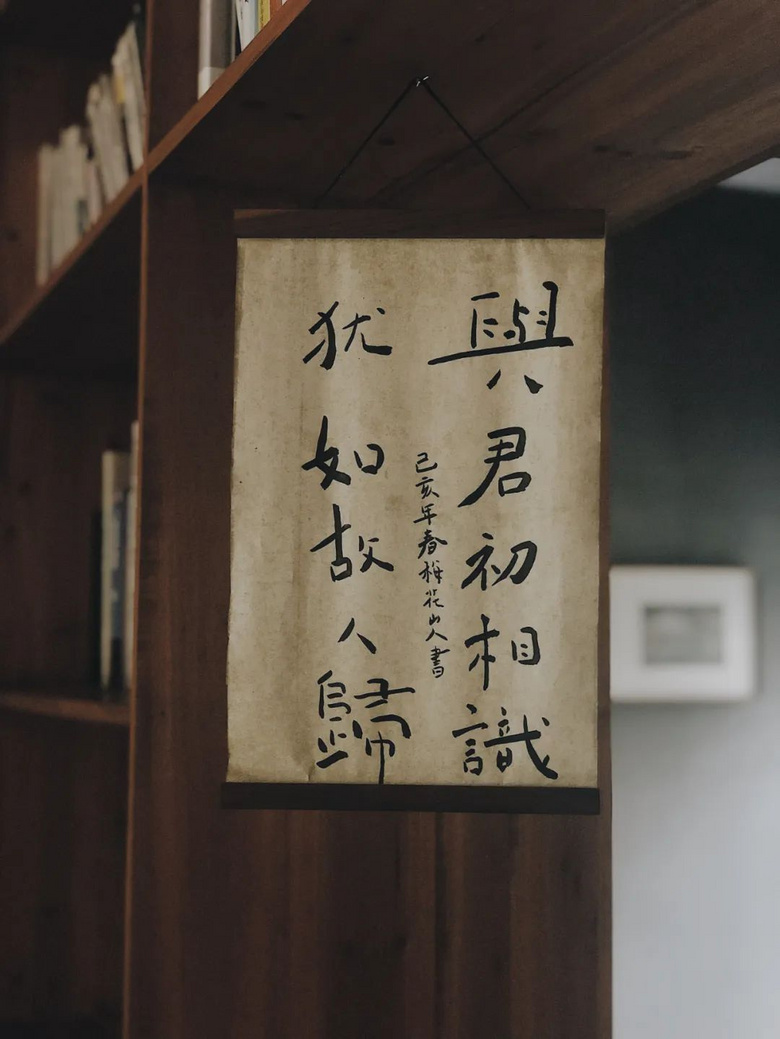 與君初相識
猶如故人歸
己亥年春梅花山人書